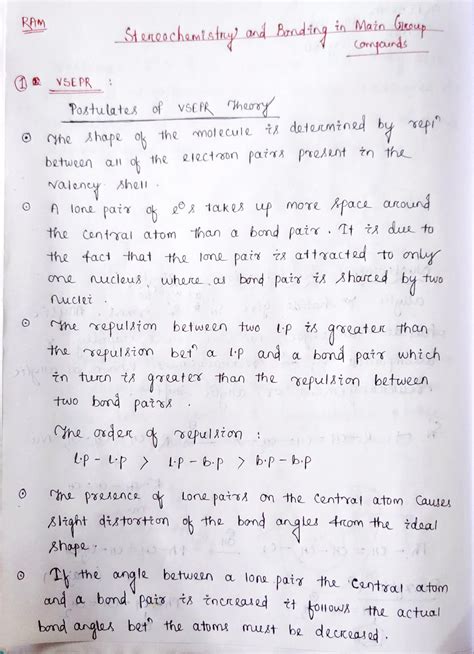 RAM
Stereochemistry and Bonding in Main Group
compounds
① VSEPR :
Postulates of VSEPR Theory
⊙ The shape of the molecule is determined by replⁿ
between all of the electron pairs present in the
valency shell.
⊙ A lone pair of e⁰s takes up more space around
the central atom than a bond pair. It is due to
the fact that the lone pair is attracted to only
one nucleus, where as bond pair is shared by two
nuclei.
⊙ The repulsion between two l.p is greater than
the repulsion betⁿ a l.p and a bond pair which
in turn is greater than the repulsion between
two bond pairs.
The order of repulsion :
l.p - l.p > l.p - b.p > b.p - b.p
⊙ The presence of lone pairs on the central atom causes
slight distortion of the bond angles from the ideal
shape.
⊙ If the angle between a lone pair the central atom
and a bond pair is increased it follows the actual
bond angles betⁿ the atoms must be decreased.